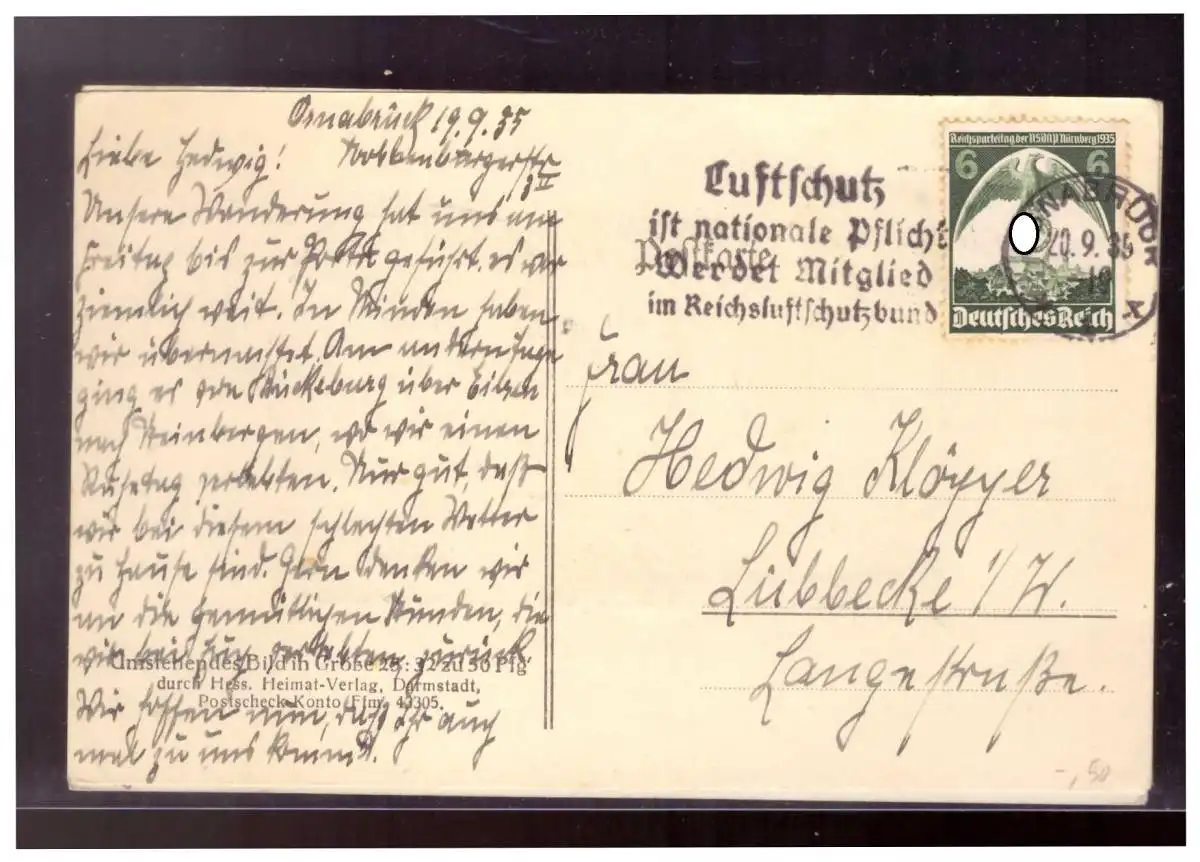 Osnabrück 19.9.35
Liebe Hedwig!
II
Unsere Wanderung hat uns am
Freitag bis zur Porta geführt. es war
ziemlich weit. In Minden haben
wir übernachtet. Am andern Tage
ging es von Bückeburg über Eilsen
nach Steinbergen, wo wir einen
Ruhetag verlebten. Nur gut, daß
wir bei diesem schlechten Wetter
zu Hause sind. Gern denken wir
an die gemütlichen Stunden, die
wir bei Euch verlebten zurück.
Wir hoffen nun, daß ihr auch
mal zu uns kommt.
Umstehendes Bild in Größe 25:32 zu 50 Pfg
durch Hess. Heimat-Verlag, Darmstadt,
Postscheck-Konto Ffm. 43305.
Luftschutz
ist nationale Pflicht
Werdet Mitglied
im Reichsluftschutzbund
Postkarte
Reichsparteitag der NSDAP Nürnberg 1935
6 6
Deutsches Reich
OSNABRÜCK
20.9.35
19
x
Frau
Hedwig Klöpper
Lübbecke i/W.
Langestraße.
-,50